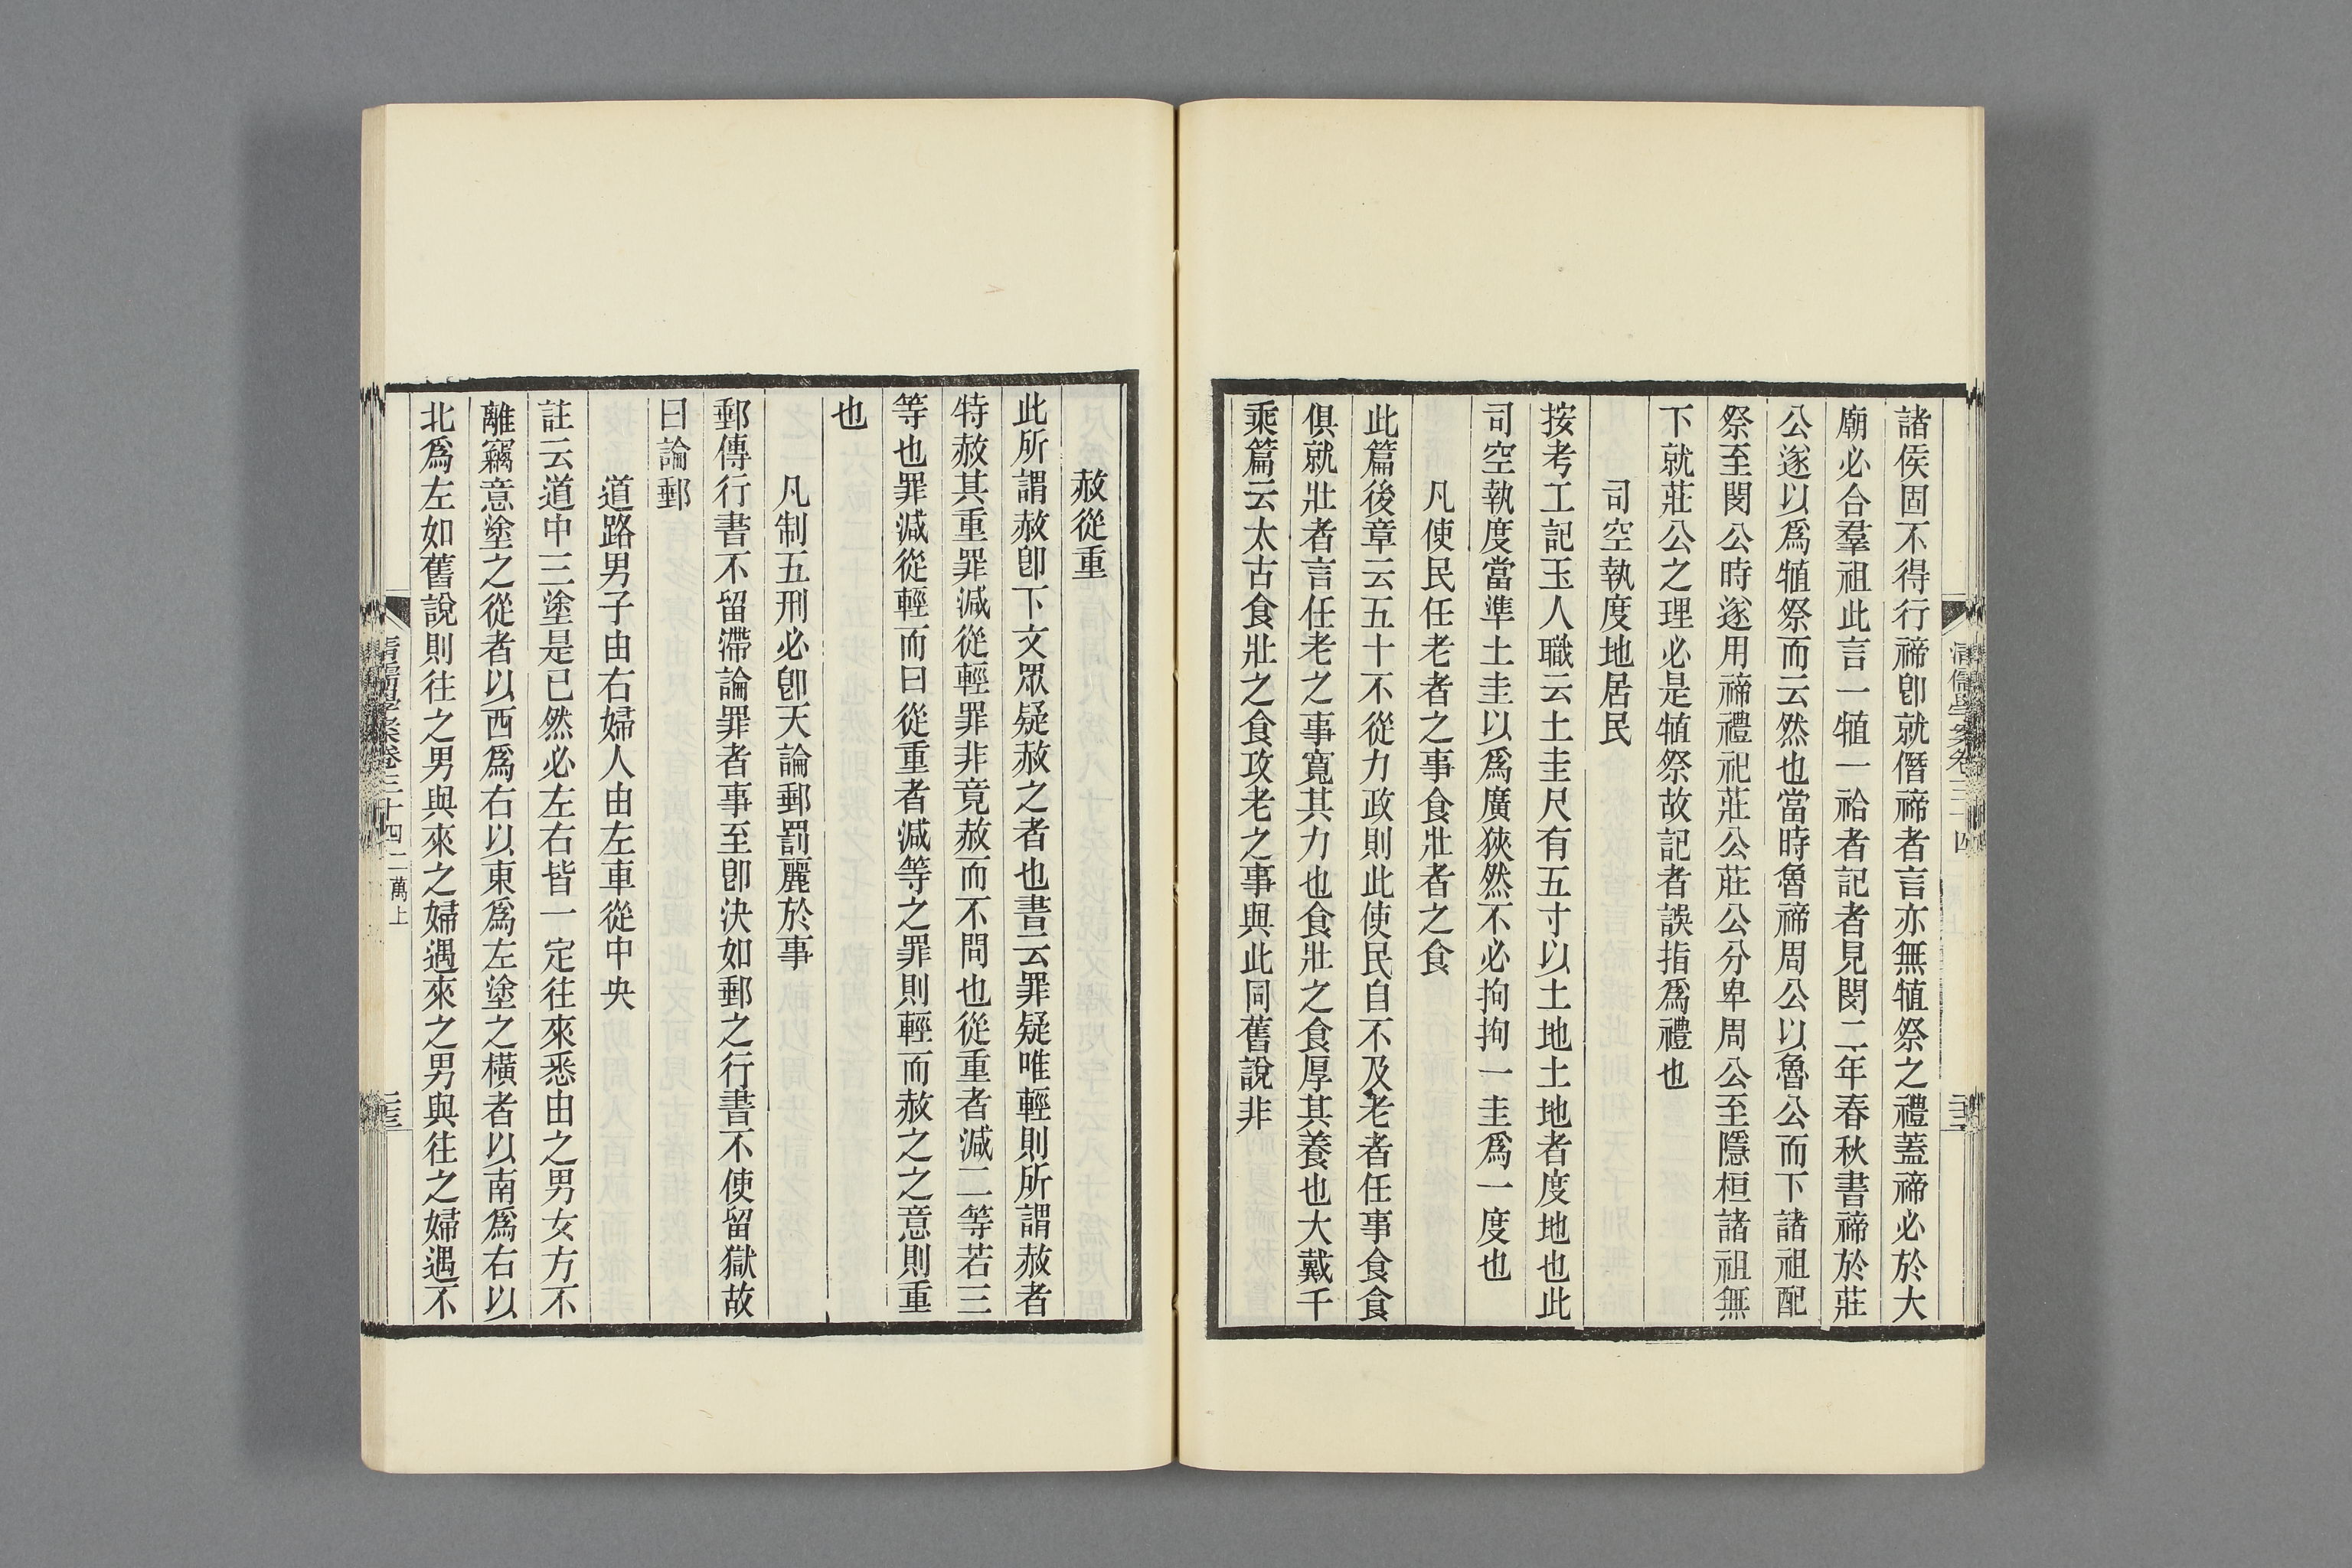 諸侯固不得行禘卽就僭禘者言亦無犆祭之禮蓋禘必於大
廟必合羣祖此言一犆一祫者記者見閔二年春秋書禘於莊
公遂以爲犆祭而云然也當時魯禘周公以魯公而下諸祖配
祭至閔公時遂用禘禮祀莊公莊公分卑周公至隱桓諸祖無
下就莊公之理必是犆祭故記者誤指爲禮也
司空執度地居民
按考工記玉人職云土圭尺有五寸以土地土地者度地也此
司空執度當準土圭以爲廣狹然不必拘拘一圭爲一度也
凡使民任老者之事食壯者之食
此篇後章云五十不從力政則此使民自不及老者任事食食
俱就壯者言任老之事寬其力也食壯之食厚其養也大戴千
乘篇云太古食壯之食攻老之事與此同舊說非
赦從重
此所謂赦卽下文眾疑赦之者也書云罪疑唯輕則所謂赦者
特赦其重罪減從輕罪非竟赦而不問也從重者減二等若三
等也罪減從輕而曰從重者減等之罪則輕而赦之之意則重
也
凡制五刑必卽天論郵罰麗於事
郵傳行書不留滯論罪者事至卽決如郵之行書不使留獄故
曰論郵
道路男子由右婦人由左車從中央
註云道中三塗是已然必左右皆一定往來悉由之男女方不
離竊意塗之從者以西爲右以東爲左塗之橫者以南爲右以
北爲左如舊說則往之男與來之婦遇來之男與往之婦遇不
清儒學案卷三十四 二萬上